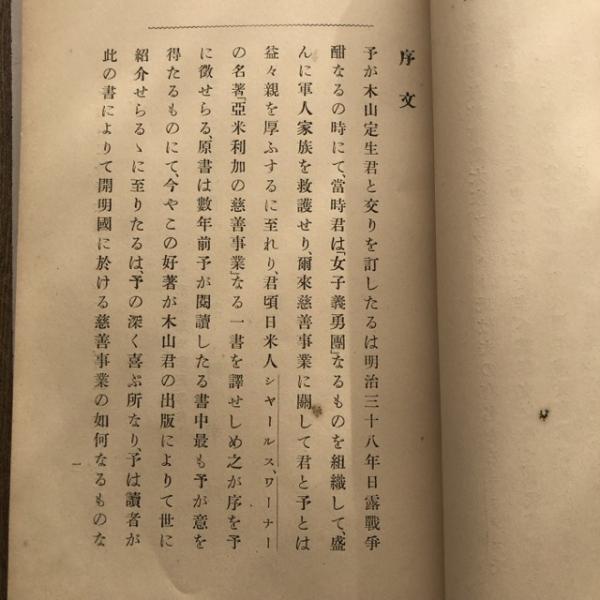 序文
予が木山定生君と交りを訂したるは明治三十八年日露戰爭
酣なるの時にて、當時君は「女子義勇團」なるものを組織して、盛
んに軍人家族を救護せり、爾來慈善事業に關して君と予とは
益々親を厚ふするに至れり、君頃日米人シヤールス、ワーナー
の名著『亞米利加の慈善事業』なる一書を譯せしめ之が序を予
に徵せらる、原書は數年前予が閱讀したる書中最も予が意を
得たるものにて、今やこの好著が木山君の出版によりて世に
紹介せらるゝに至りたるは、予の深く喜ぶ所なり、予は讀者が
此の書によりて開明國に於ける慈善事業の如何なるものな
一